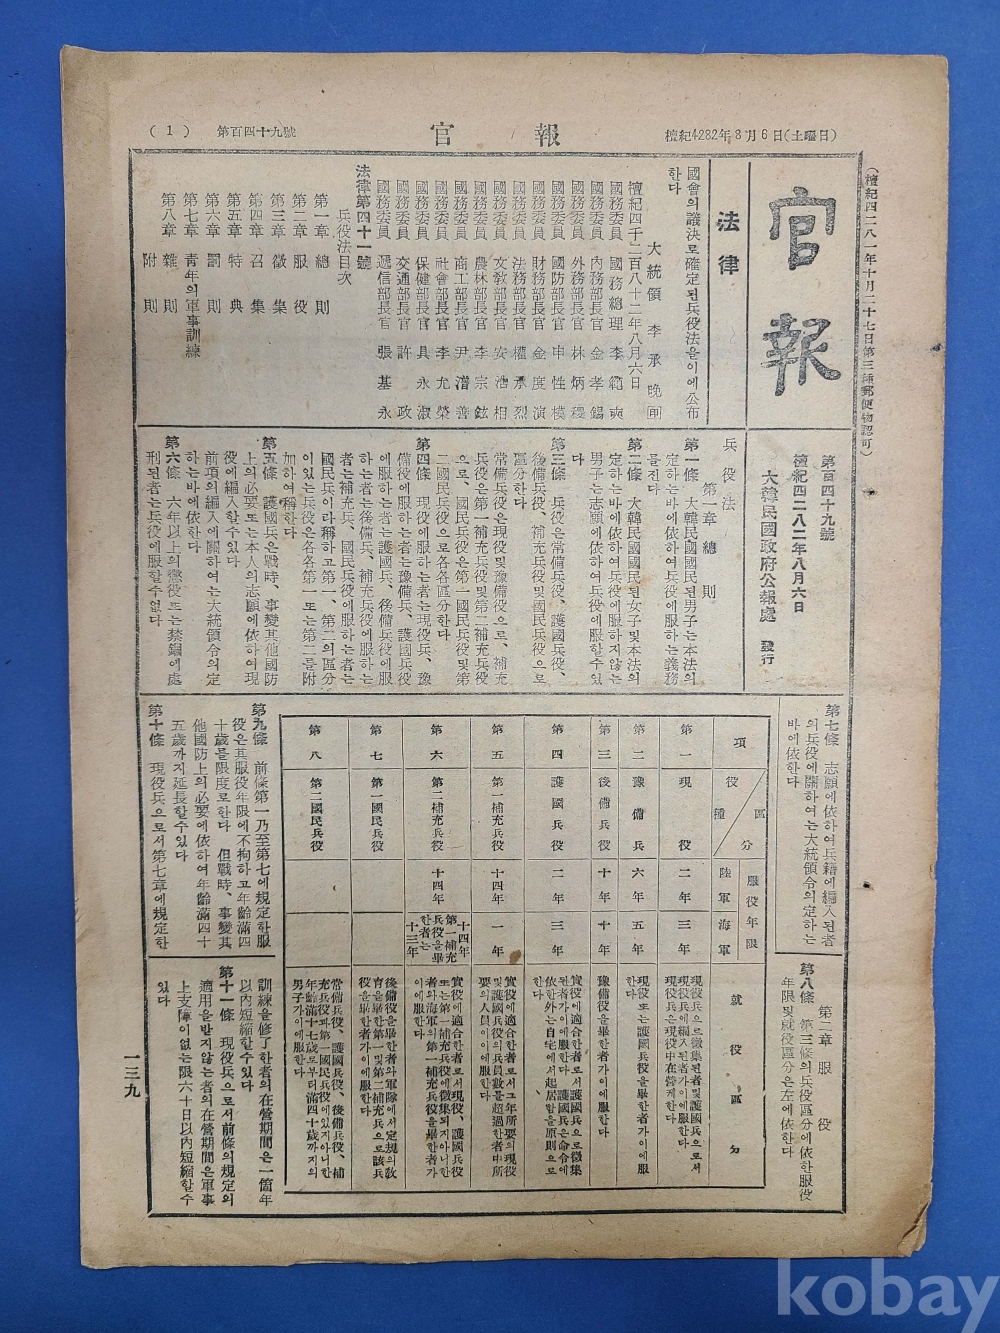 (1)
第百四十九號
官報
檀紀4282年8月6日(土曜日)
(檀紀四二八一年十月二十七日第三種郵便物認可)
官報
第百四十九號
檀紀四二八二年八月六日
大韓民國政府公報處 發行
法律
國會의議決로確定된兵役法을이에公布
한다
大統領 李承晩 印
檀紀四千二百八十二年八月六日
國務委員 國務總理 李範奭
國務委員 內務部長官 金孝錫
國務委員 外務部長官 林炳稷
國務委員 國防部長官 申性模
國務委員 財務部長官 金度演
國務委員 法務部長官 權承烈
國務委員 文敎部長官 安浩相
國務委員 農林部長官 李宗鉉
國務委員 商工部長官 尹潽善
國務委員 社會部長官 李允榮
國務委員 保健部長官 具永淑
國務委員 交通部長官 許政
國務委員 遞信部長官 張基永
法律第四十一號
兵役法目次
第一章 總則
第二章 服役
第三章 徵集
第四章 召集
第五章 特典
第六章 罰則
第七章 靑年의軍事訓練
第八章 雜則
附則
兵役法
第一章 總則
第一條 大韓民國國民된男子는本法의
定하는바에依하여兵役에服하는義務
를진다
第二條 大韓民國國民된女子및本法의
定하는바에依하여兵役에服하지않는
男子는志願에依하여兵役에服할수있
다
第三條 兵役은常備兵役、護國兵役、
後備兵役、補充兵役및國民兵役으로
區分한다
常備兵役은現役및豫備役으로、補充
兵役은第一補充兵役및第二補充兵役
으로、國民兵役은第一國民兵役및第
二國民兵役으로各各區分한다
第四條 現役에服하는者는現役兵、豫
備役에服하는者는豫備兵、護國兵役
에服하는者는護國兵、後備兵役에服
하는者는後備兵、補充兵役에服하는
者는補充兵、國民兵役에服하는者는
國民兵이라稱하고第一、第二의區分
이있는兵役은各各第一또는第二를附
加하여稱한다
第五條 護國兵은戰時、事變其他國防
上의必要또는本人의志願에依하여現
役에編入할수있다
前項의編入에關하여는大統領令의定
하는바에依한다
第六條 六年以上의懲役또는禁錮에處
刑된者는兵役에服할수없다
第七條 志願에依하여兵籍에編入된者
의兵役에關하여는大統領令의定하는
바에依한다
第二章 服役
第八條 第三條의兵役區分에依한服役
年限및就役區分은左에依한다
項 役種 區分 服役年限 陸軍 海軍 就役區分
第一 現役 二年 三年 現役兵으로徵集된者및護國兵으로서
現役兵에編入된者가이에服한다
現役兵은現役中在營케한다
第二 豫備兵 六年 五年 現役또는護國兵役을畢한者가이에服
한다
第三 後備兵役 十年 十年 豫備役을畢한者가이에服한다
第四 護國兵役 二年 三年 實役에適合한者로서護國兵으로徵集
된者가이에服한다 護國兵은命令에
依한外는自宅에서起居함을原則으로
한다
第五 第一補充兵役 十四年 一年 實役에適合한者로서그年所要의現役
및護國兵役의兵員數를超過한者中所
要의人員이이에服한다
第六 第二補充兵役 十四年 十四年
第一補充
兵役을畢
한者는
十三年 實役에適合한者로서現役、護國兵役
또는第一補充兵役에徵集되지아니한
者와海軍의第一補充兵役을畢한者가
이에服한다
第七 第一國民兵役 後備役을畢한者와軍隊에서定規의敎
育을畢한第一및第二補充兵으로該兵
役을畢한者가이에服한다
第八 第二國民兵役 常備兵役、護國兵役、後備兵役、補
充兵役과第一國民兵役에있지아니한
年齡滿十七歲로부터滿四十歲까지의
男子가이에服한다
第九條 前條第一乃至第七에規定한服
役은其服役年限에不拘하고年齡滿四
十歲를限度로한다 但戰時、事變其
他國防上의必要에依하여年齡滿四十
五歲까지延長할수있다
第十條 現役兵으로서第七章에規定한
訓練을修了한者의在營期間은一箇年
以內短縮할수있다
第十一條 現役兵으로서前條의規定의
適用을받지않는者의在營期間은軍事
上支障이없는限六十日以內短縮할수
있다
一三九
kobay